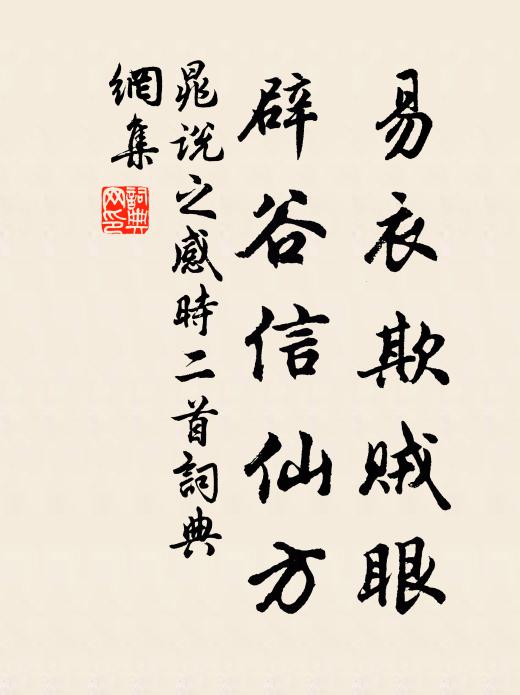 易衣欺贼眼
辟谷信仙方
晁说之感時二首詞典
網集
詞典
网印